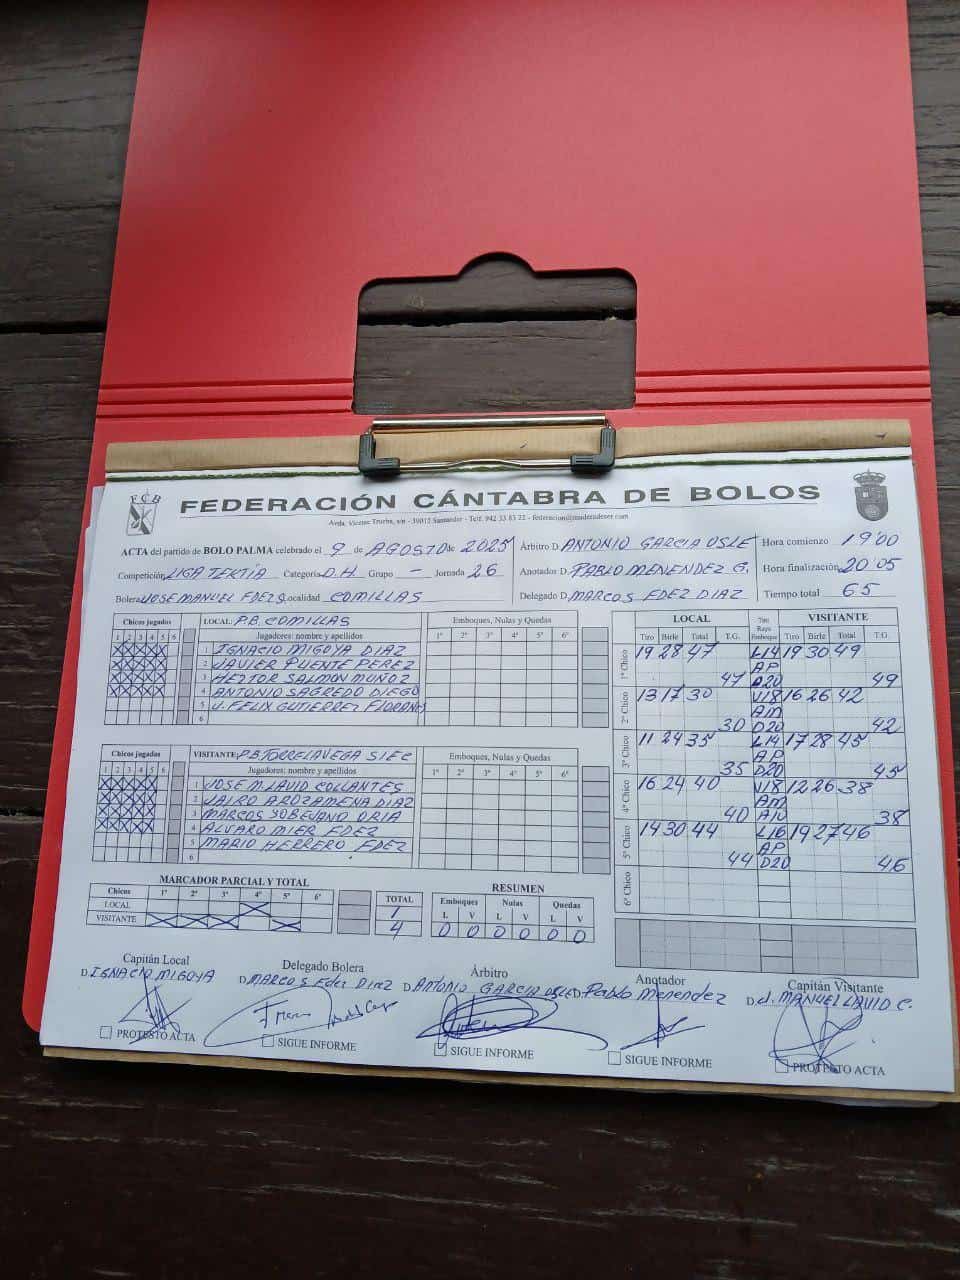 FCB
FEDERACIÓN CÁNTABRA DE BOLOS
Avda. Vicente Trueba, s/n - 39011 Santander - Telf. 942 33 83 22 - federacion@maderadeser.com
ACTA del partido de BOLO PALMA celebrado el 9 de AGOSTO de 2025
Competición LIGA TEKTIA Categoría D.H. Grupo — Jornada 26
Bolera JOSE MANUEL FDEZ Localidad COMILLAS
Árbitro D. ANTONIO GARCIA OSLE
Anotador D. PABLO MENENDEZ G.
Delegado D. MARCOS FDEZ DIAZ
Hora comienzo 19'00
Hora finalización 20'05
Tiempo total 65
Chicos jugados
1 2 3 4 5 6
LOCAL: P.B. COMILLAS
Jugadores: nombre y apellidos
Emboques, Nulas y Quedas
1º 2º 3º 4º 5º 6º
1 IGNACIO MIGOYA DIAZ
2 JAVIER PUENTE PEREZ
3 HECTOR SALMON MUÑOZ
4 ANTONIO SAGREDO DIEGO
5 J. FELIX GUTIERREZ
6
Chicos jugados
1 2 3 4 5 6
VISITANTE: P.B. TORRELAVEGA SIEC
Jugadores: nombre y apellidos
Emboques, Nulas y Quedas
1º 2º 3º 4º 5º 6º
1 JOSE M. LAVID COLLANTES
2 JAIRO AROZAMENA DIAZ
3 MARCOS SOBEJANO ORIA
4 ALVARO MIER FDEZ
5 MARIO HERRERO FDEZ
6
LOCAL VISITANTE
Tiro Birle Total T.G. Tiro Raya Emboque Tiro Birle Total T.G.
1º Chico 19 28 47 L14 19 30 49
AP
47 D20 49
2º Chico 13 17 30 V18 16 26 42
AM
30 D20 42
3º Chico 11 24 35 L14 17 28 45
AP
35 D20 45
4º Chico 16 24 40 V18 12 26 38
AM
40 A10 38
5º Chico 14 30 44 L16 19 27 46
AP
44 D20 46
6º Chico
MARCADOR PARCIAL Y TOTAL
Chicos 1º 2º 3º 4º 5º 6º TOTAL
LOCAL 1
VISITANTE 4
RESUMEN
Emboques Nulas Quedas
L V L V L V
0 0 0 0 0 0
Capitán Local
D. IGNACIO MIGOYA
PROTESTO ACTA
Delegado Bolera
D. MARCOS Fdez Diaz
SIGUE INFORME
Árbitro
D. ANTONIO GARCIA OSLE
SIGUE INFORME
Anotador
D. Pablo Menendez
SIGUE INFORME
Capitán Visitante
D. J. MANUEL LAVID C.
PROTESTO ACTA